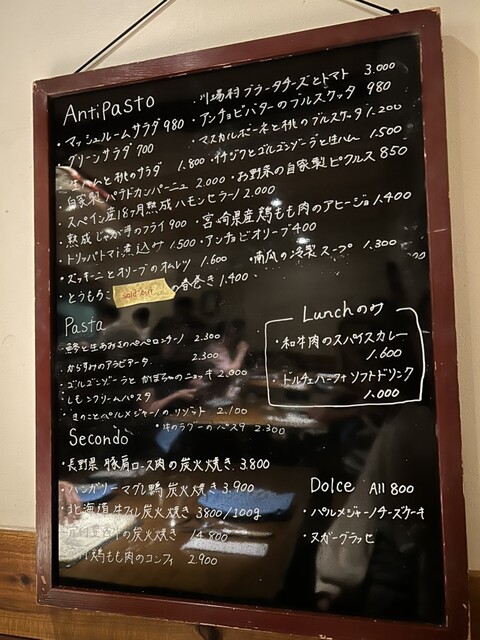 AntiPasto
・川場村ブラータチーズとトマト 3.000
・マッシュルームサラダ 980 ・アンチョビバターのブルスケッタ 980
・グリーンサラダ 700 マスカルポーネと桃のブルスケッタ 1.200
生ハムと桃のサラダ 1.800 ・イチジクとゴルゴンゾーラと生ハム 1.500
自家製パテドカンパーニュ 2.000 ・お野菜の自家製ピクルス 850
・スペイン産18ヶ月熟成ハモンセラーノ 2.000
・熟成じゃが芋のフライ 900 ・宮崎県産鶏もも肉のアヒージョ 1.400
・トリッパトマト煮込み 1.500 ・アンチョビオリーブ 400
・ズッキーニとオリーブのオムレツ 1.600 ・南瓜の冷製スープ 1.300
・とうもろこ sold out の春巻き 1.400
Pasta
・生あみさのペペロンチーノ 2.300
からすみのアラビアータ 2.300
・ゴルゴンゾーラとかぼちゃのニョッキ 2.000
・レモンクリームパスタ
・きのことペルメジャーノのリゾット 2.100
・牛のラグーのパスタ 2.300
Lunchのみ
・和牛肉のスパイスカレー
1.600
・ドルチェハーフ+ソフトドリンク
1.000
Secondo
・長野県 豚肩ロース肉の炭火焼き 3.800
・ハンガリーマグレ鴨 炭火焼き 3.900
・北海道牛フィレ炭火焼き 3800/100g
の炭火焼き 14.800
鶏もも肉のコンフィ 2.900
Dolce All 800
・パルメジャーノチーズケーキ
・ヌガーグラッセ